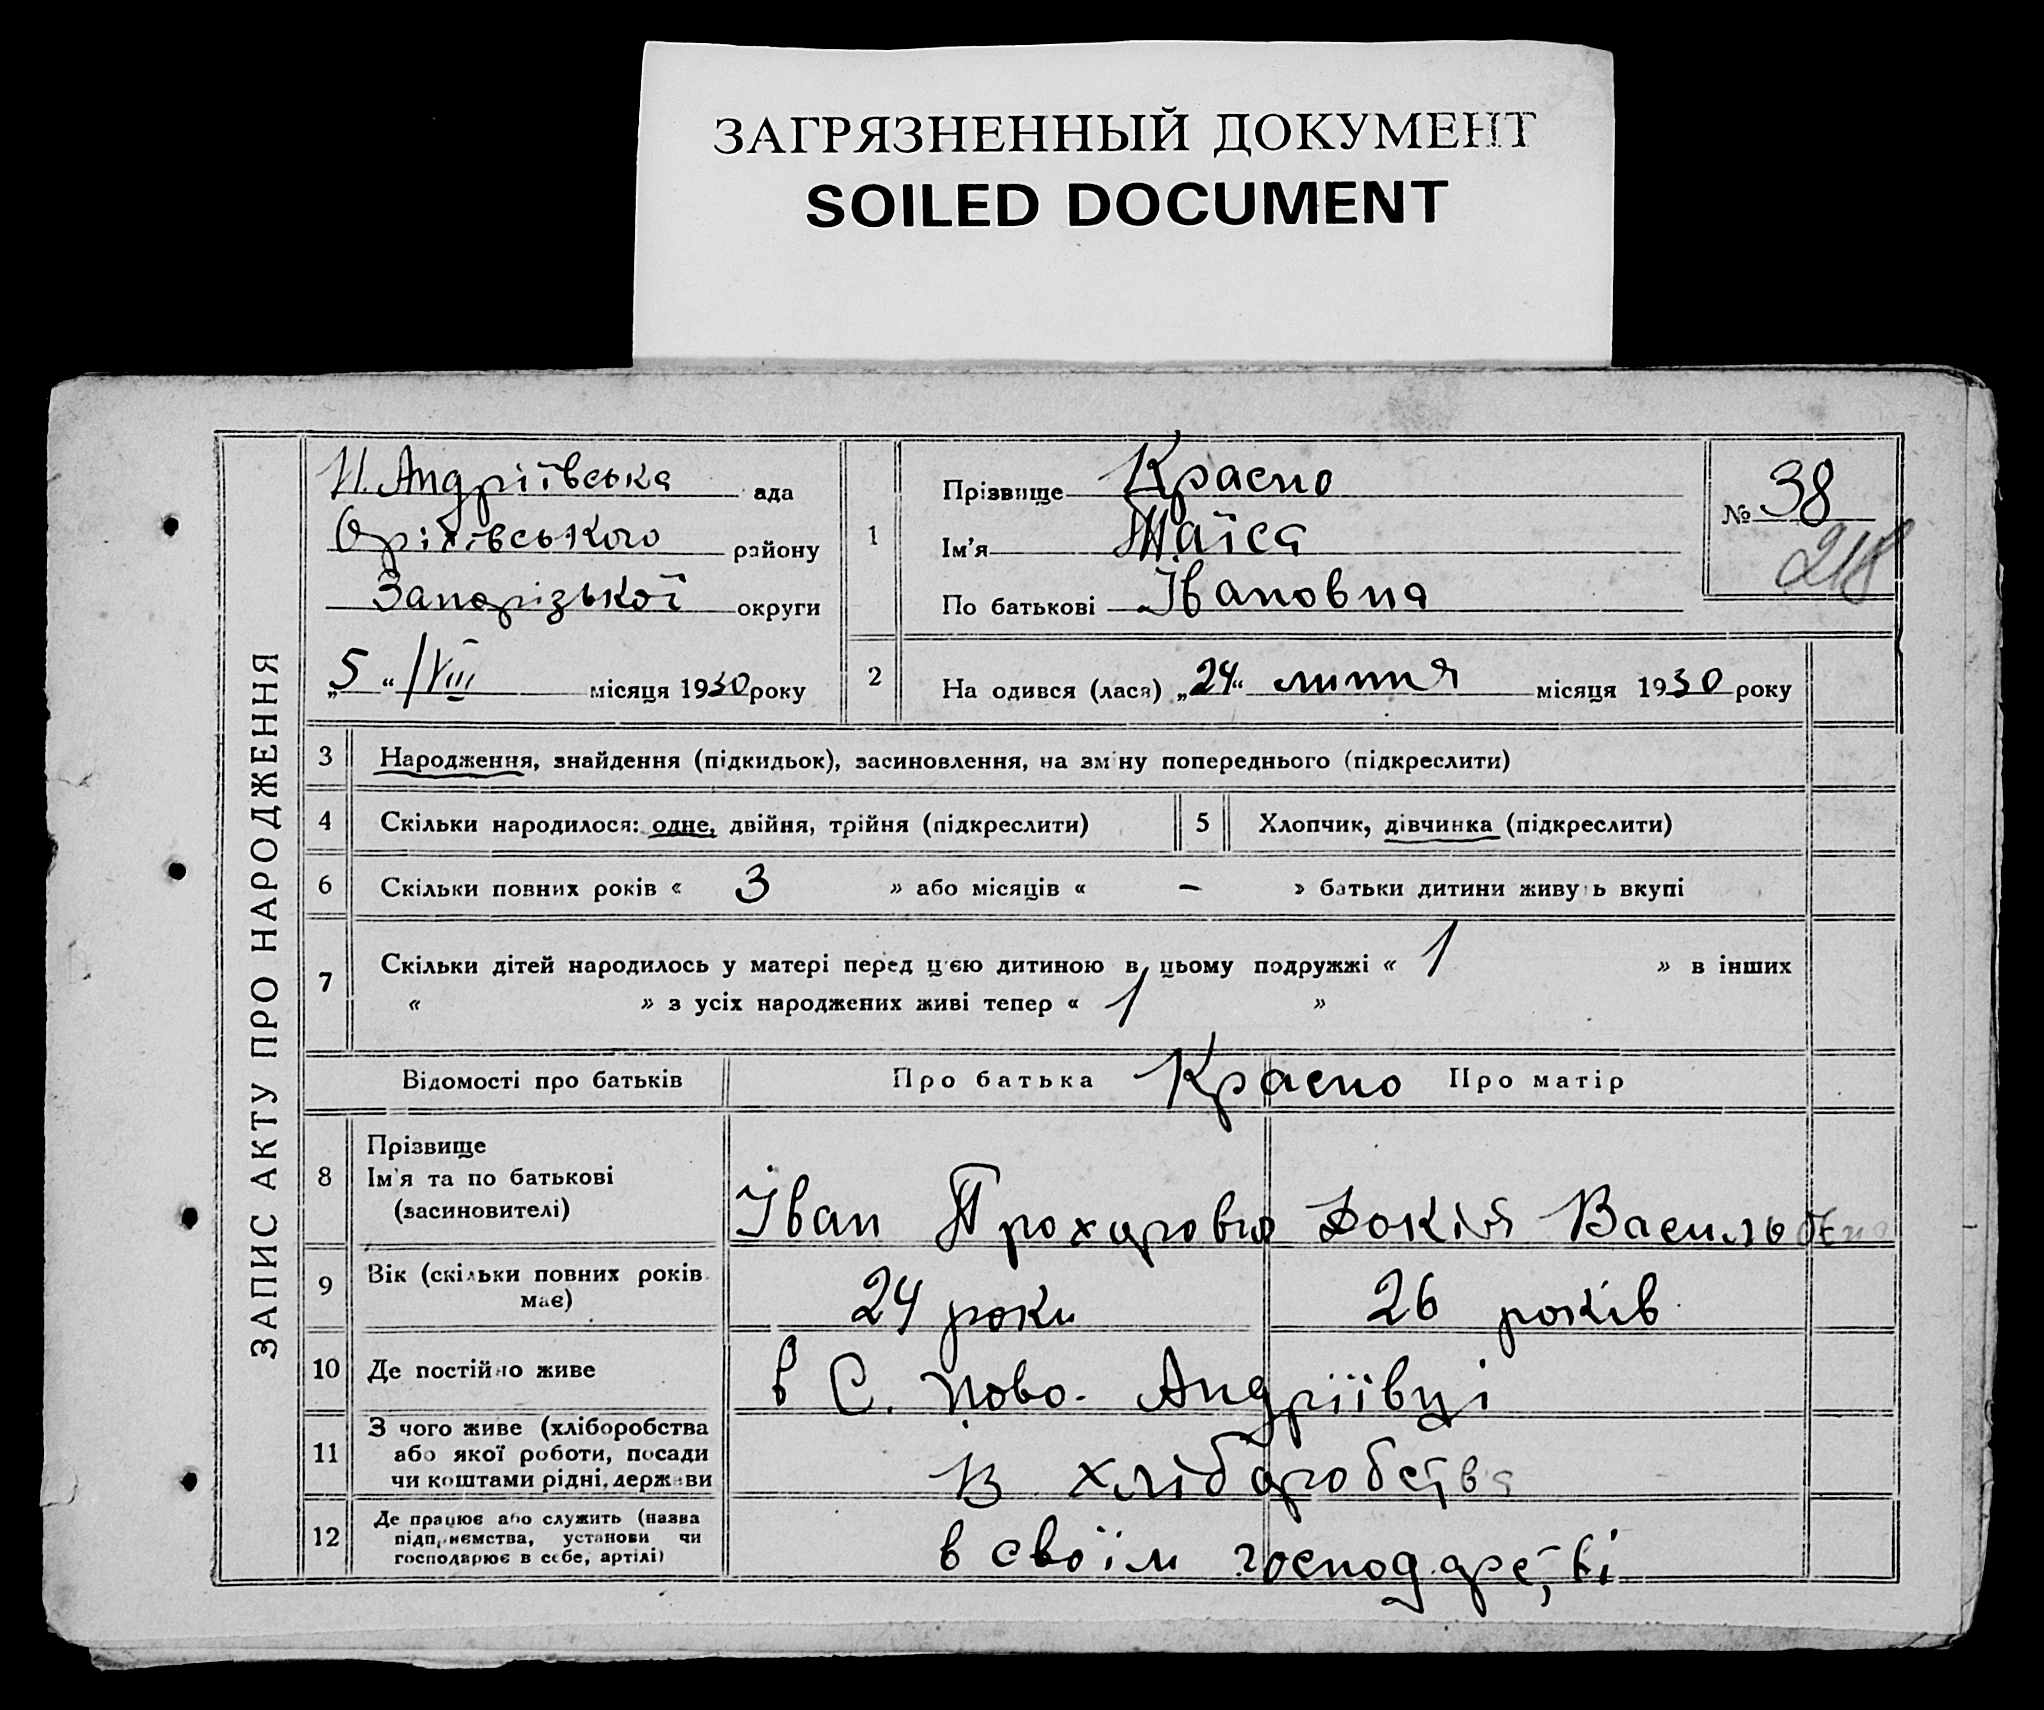 ЗАГРЯЗНЕННЫЙ ДОКУМЕНТ
SOILED DOCUMENT
ЗАПИС АКТУ ПРО НАРОДЖЕННЯ
Н. Андріївська ада
Оріхівського району
Запорізької округи
„5“ /VIII місяця 1930 року
1 Прізвище Красно
Ім'я Таїса
По батькові Івановна
№ 38
218
2 На одився (лася) „24“ липня місяця 1930 року
3 Народження, знайдення (підкидьок), засиновлення, на зміну попереднього (підкреслити)
4 Скільки народилося: одне, двійня, трійня (підкреслити) 5 Хлопчик, дівчинка (підкреслити)
6 Скільки повних років « 3 » або місяців « – » батьки дитини живуть вкупі
7 Скільки дітей народилось у матері перед цією дитиною в цьому подружжі « 1 » в інших
« » з усіх народжених живі тепер « 1 »
Відомості про батьків Про батька Красно Про матір
8 Прізвище
Ім'я та по батькові
(засиновителі)
Іван Прохорович Докія Васильовна
9 Вік (скільки повних років
має)
24 роки 26 років
10 Де постійно живе в С. Ново-Андріївці
11 З чого живе (хліборобства
або якої роботи, посади
чи коштами рідні, держави
З хліборобства
12 Де працює або служить (назва
підприємства, установи чи
господарює в себе, артілі)
в своїм господарстві